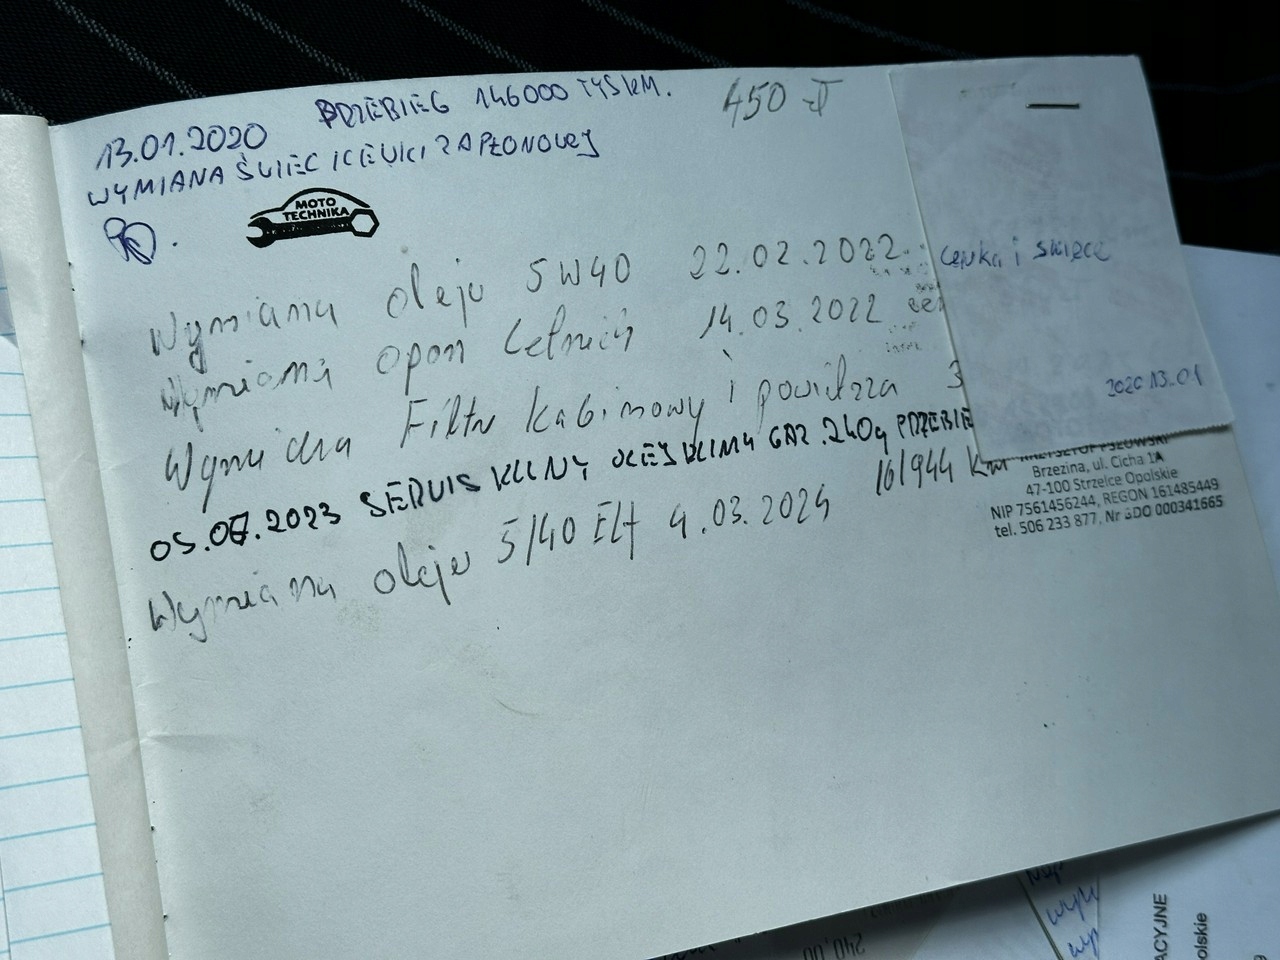 13.01.2020 PRZEBIEG 146000 TYSKM. 450 zł
WYMIANA ŚWIEC I CEWKI ZAPŁONOWEJ
MOTO
TECHNIKA
Wymiana oleju 5W40 22.02.2022
cewka i świece
Wymiana opon letnich 14.03.2022
Wymiana Filtr kabinowy i powietrza 3
2020 13.01
05.07.2023 SERWIS KLIMY OLEJ KLIMA GAZ 240g PRZEBIE
161944 Km
Wymiana oleju 5/40 Elf 4.03.2024
Brzezina, ul. Cicha 1A
47-100 Strzelce Opolskie
NIP 7561456244, REGON 161485449
tel. 506 233 877, Nr BDO 000341665
240,00
ACYJNE
olskie